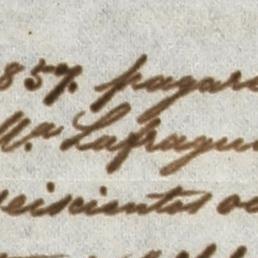 857. pagaré
M.a Lafragu
seiscientos oc